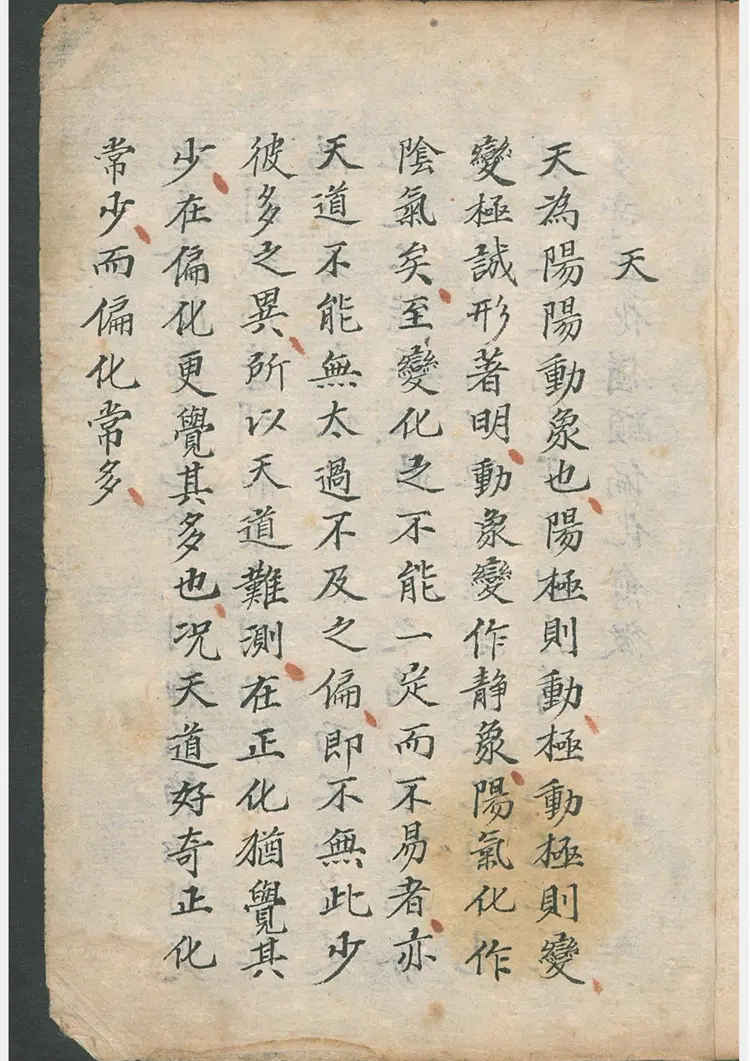 天
天為陽陽動象也陽極則動極動極則變
變極誠形著明動象變作靜象陽氣化作
陰氣矣至變化之不能一定而不易者亦
天道不能無太過不及之偏即不無此少
彼多之異所以天道難測在正化猶覺其
少在偏化更覺其多也况天道好奇正化
常少而偏化常多